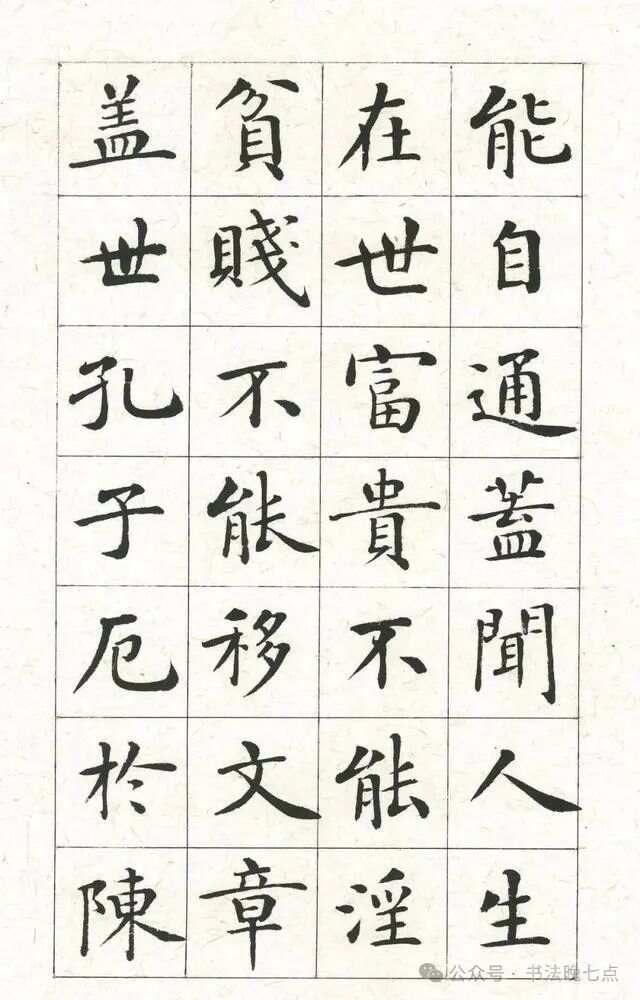 能自通蓋聞人生
在世富貴不能淫
貧賤不能移文章
盖世孔子厄於陳
公众号·书法晚七点